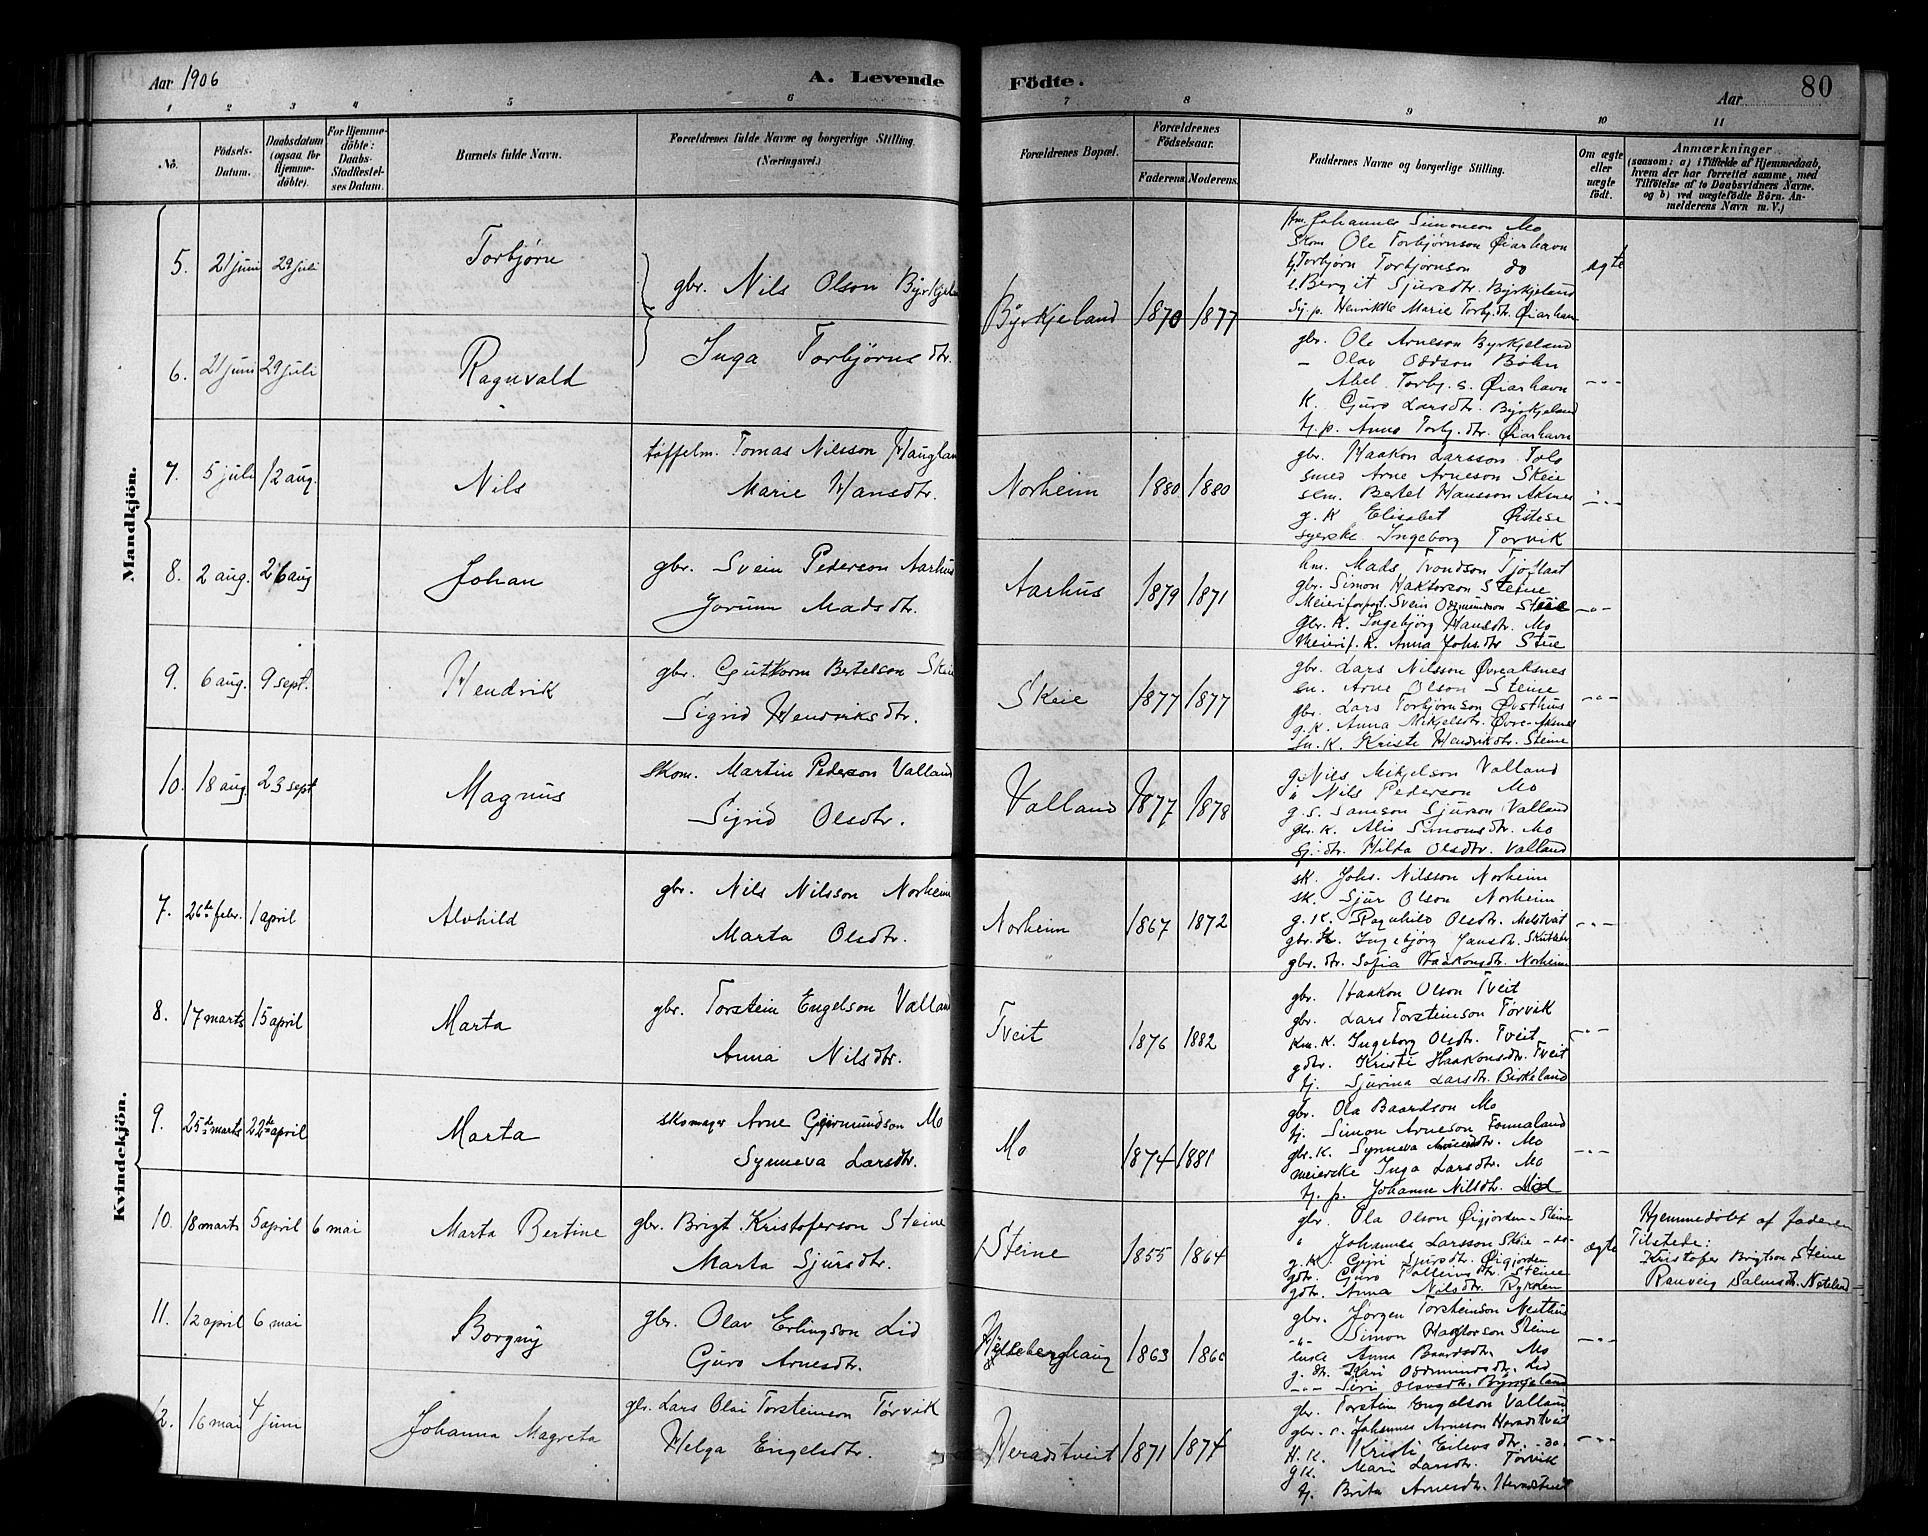 Aar 1906
A. Levende
Födte.
Aar
80
1 2 3 4 5 6 7 8 9 10 11
No. Födsels-Datum. Daabsdatum (ogsaa for Hjemme-döbte). For Hjemme-döbte: Daabs- Stadfæstel-ses Datum. Barnets fulde Navn. Forældrenes fulde Navne og borgerlige Stilling. (Næringsvei.)
Forældrenes Bopæl. Forældrenes Födselsaar. Faderens. Moderens. Faddernes Navne og borgerlige Stilling. Om ægte eller uægte födt. Anmærkninger (saasom: a) i Tilfælde af Hjemmedaab, hvem der har forrettet samme, med Tilföielse af to Daabsvidners Navne. og b) ved uægtefödte Börn. An-melderens Navn m. V.)
Mandkjön.
5. 21 juni 29 juli Torbjørn
gbr. Nils Olson Byrkjeland
Inga Torbjørnsdtr.
Byrkjeland 1870 1877
Hm. Johannes Simonson Mo
Skom Ole Torbjørnson Øiarhavn
tj. Torbjørn Torbjørnson do
Bergit Sjursdtr. Byrkjeland
Sy.p. Henrikke Marie Torbj.dtr. Øiarhavn
ægte
6. 21 juni 29 juli Ragnvald
gbr. Ole Arneson Byrkjeland
- Olav Oddson Bøhn
Abel Torbj. s. Øiarhavn
K. Guro Larsdtr. Byrkjeland
tj. p. Anna Torbj. dtr. Øiarhavn
-"-
7. 5 juli 12 aug. Nils
tøffelm. Tomas Nilsson Haugland
Marie Hansdtr.
Norheim 1880 1880
gbr. Haakon Larsson Tolo
smed Arne Arneson Skeie
sem. Bertel Hansson Aksnes
g. K Elisabet Østese
syerske Ingeborg Torvik
-"-
8. 2 aug. 26 aug Johan
gbr. Svein Pederson Aarhus
Jorunn Madsdtr.
Aarhus 1879 1871
hm. Mads Trondson Tjoflaat
gbr. Simon Haktorson Steine
Meieriforpagt. Svein Oddmundson Steine
gbr. K. Ingebjørg Hansdtr. Mo
Meierif. K. Anna Johs.dtr Steine
-"-
9. 6 aug. 9 sept. Hendrik
gbr. Guttorm Bertelson Skeie
Sigrid Hendriksdtr.
Skeie 1877 1877
gbr. Lars Nilsson Øvreaksnes
sn. Arne Olson Steine
gbr. Lars Torbjørnson Øvsthus
g.K. Anna Mikjelsdtr. Øvre-Aksnes
Sn. K. Kristi Hendriksdtr. Steine
-"-
10. 18 aug. 23 sept Magnus
skom. Martin Pederson Valland
Sigrid Olsdtr.
Valland 1877 1878
g. Nils Mikjelson Valland
" Nils Pederson Mo
g. s. Samson Sjurson Valland
gbr. K. Alis Simonsdtr. Mo
dtr. Hilda Olsdtr. Valland
Kvindekjön.
7. 26de febr. 1 april Alvhild
gbr. Nils Nilsson Norheim
Marta Olsdtr.
Norheim 1867 1872
sk. Johs. Nilsson Norheim
sk. Sjur Olson Norheim
g. K. Ragnhild Olsdtr.
gbr. K. Ingebjørg Jansdtr.
gbr. dtr. Sofia Haakonsdtr. Norheim
-"-
8. 17 marts 15 april Marta
gbr. Torstein Engelson Valland
Anna Nilsdtr.
Tveit 1876 1882
gbr. Haakon Olson Tveit
gbr. Lars Torsteinson Tørvik
Km. K. Ingeborg Olsdtr. Tveit
gdtr. Kristi Haakonsdtr. Tveit
tj. Sjurina Larsdtr. Birkeland
-"-
9. 25de marts 22de april Marta
skomager Arne Geirmundson Mo
Synneva Larsdtr.
Mo 1874 1881
gbr. Ola Baardson Mo
tj. Simon Arneson Fonnaland
gbr. K. Synneva Arnesdtr. Mo
meierske Inga Larsdtr. Mo
tj. p. Johanne Nilsdtr. Lid
-"-
10. 18 marts 5 april 6 mai Marta Bertine
gbr. Brigt Kristoferson Steine
Marta Sjursdtr.
Steine 1855 1864
gbr. Ola Olson Øigjorden - Steine
" Johannes Larsson Skeie -do-
g.K. Gyri Sjursdtr. Øigjorden
gdtr. Guro Sjursdtr. Steine
gdtr. Anna Nilsdtr. Rykken
ægte
Hjemmedøbt af faderen
Tilstede:
Kristofer Brigtson Steine
Ranveig Salmsdtr. Neteland
11. 12 april 6 mai Borgny
gbr. Olav Erlingson Lid
Guro Arnesdtr.
1863 1866
gbr. Jørgen Torsteinson Neithus
-"- Simon Haktorson Steine
enke Anna Baardsdtr. Mo
g. dtr. Kari Oddmundsdtr. Lid
-"- Siri Olavsdtr. Byrkjeland
-"-
12. 16 mai 4 juni Johanna Magreta
gbr. Lars Olai Torsteinson Tørvik
Helga Engelsdtr.
Heradstveit 1871 1874
gbr. Torstein Engelson Valland
gbr. s. Johannes Arneson Heradstveit
H. K. Kristi Eilevsdtr. -do-
gK. Mari Larsdtr. Tørvik
tj. Brita Arnesdtr. Heradstveit
-"-